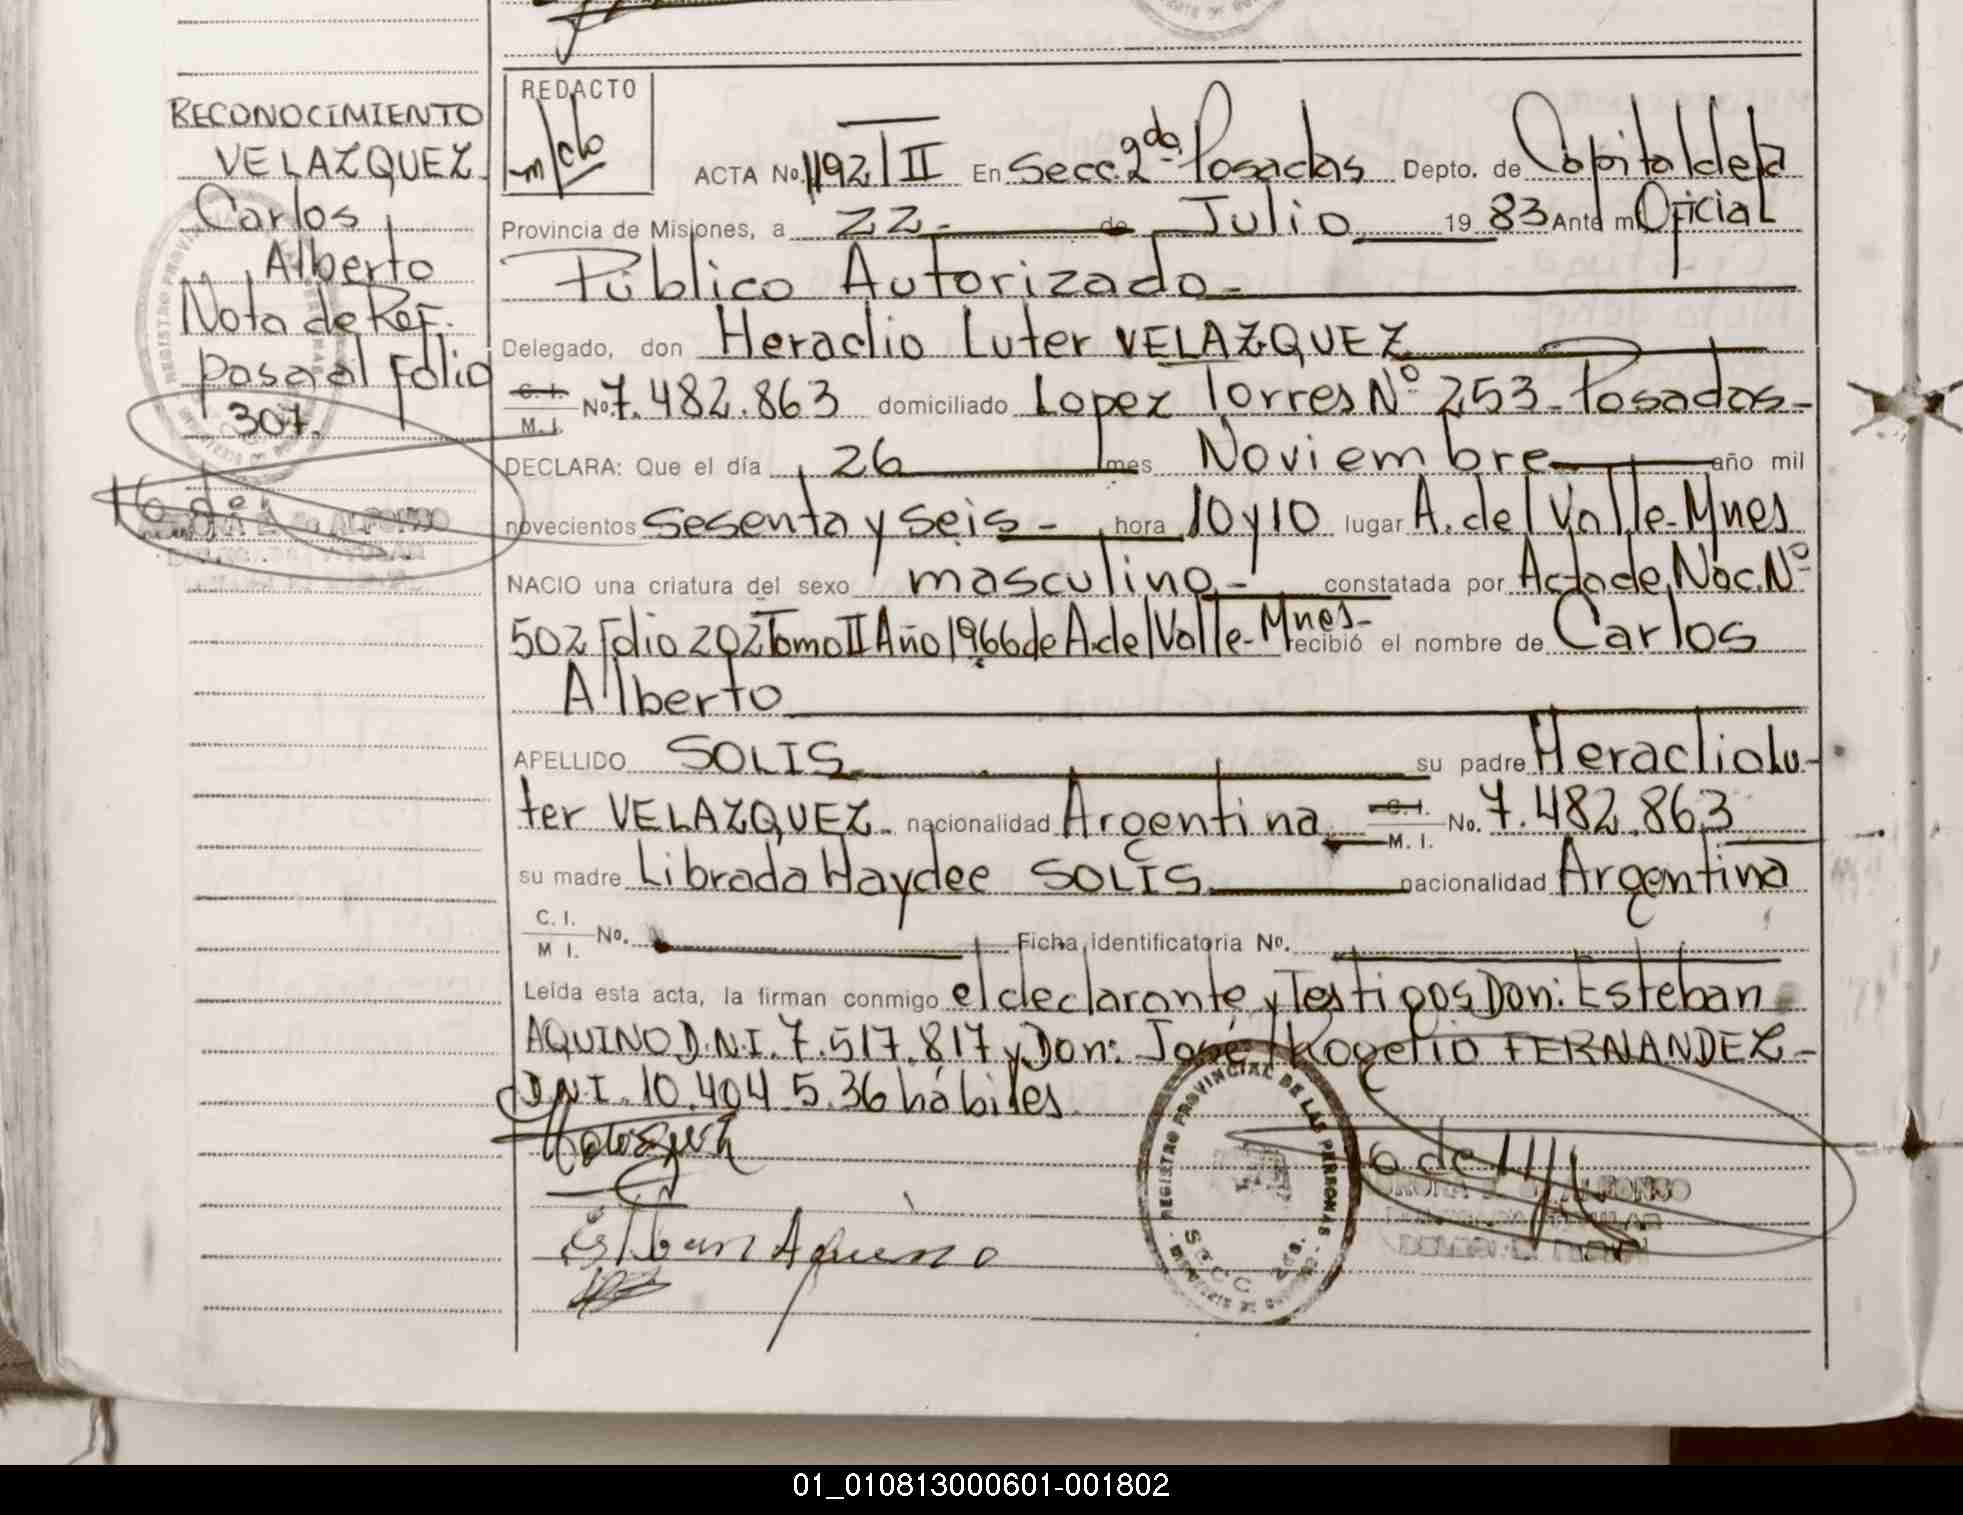 RECONOCIMIENTO
VELAZQUEZ
Carlos
Alberto
Nota de Ref.
pasa al Folio
307.
REDACTO
ACTA No. 1192/II En Secc. 2da. Posadas Depto. de Capital de la
Provincia de Misiones, a 22 - de Julio 1983 Ante mi Oficial
Público Autorizado -
Delegado, don Heraclio Luter VELAZQUEZ
C. I. M. I. No. 7.482.863 domiciliado Lopez Torres Nº 253 - Posadas -
DECLARA: Que el día 26 mes Noviembre año mil
novecientos sesenta y seis - hora 10 y 10 lugar A. del Valle - Mnes
NACIO una criatura del sexo masculino - constatada por Acta de Nac. Nº
502 Folio 202 Tomo II Año 1966 de A. del Valle - Mnes - recibió el nombre de Carlos
Alberto
APELLIDO SOLIS su padre Heraclio Lu-
ter VELAZQUEZ - nacionalidad Argentina C. I. M. I. No. 7.482.863
su madre Librada Haydee SOLIS nacionalidad Argentina
C. I. M I. No. Ficha identificatoria No.
Leída esta acta, la firman conmigo el declarante y Testigos Don: Esteban
AQUINO D.N.I. 7.517.817 y Don: José Rogelio FERNANDEZ -
D.N.I. 10.404.536 hábiles.
Esteban Aquino
REGISTRO PROVINCIAL DE LAS PERSONAS
SECC. 2da.
01_010813000601-001802